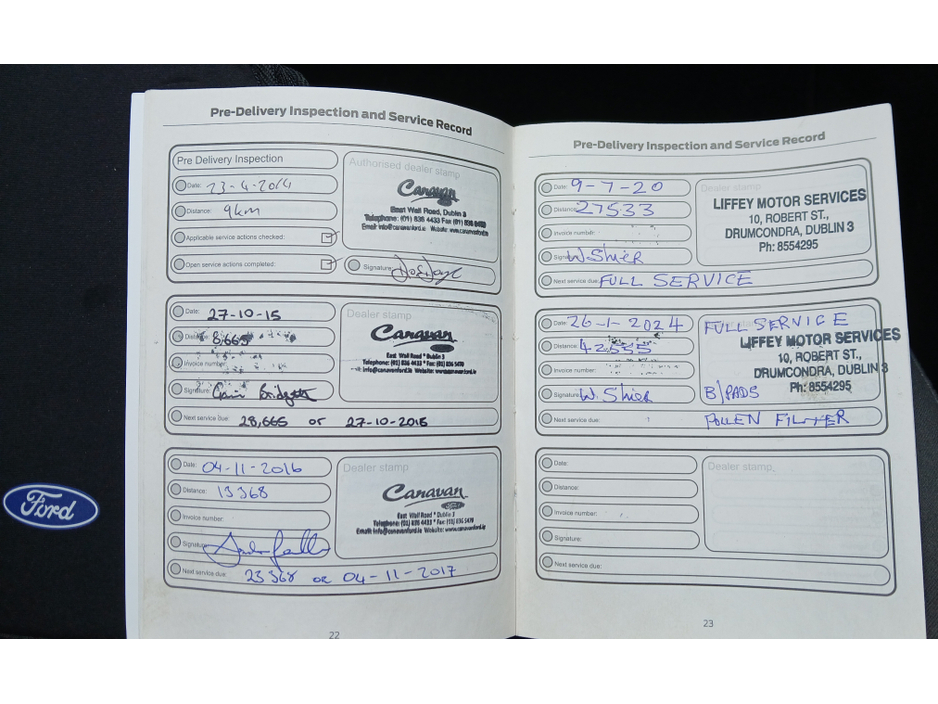 Pre-Delivery Inspection and Service Record
Pre Delivery Inspection
Date: 23-4-2014
Distance: 9km
Applicable service actions checked:
Open service actions completed:
Authorised dealer stamp
Canavan
East Wall Road, Dublin 3
Telephone: (01) 836 4433 Fax (01)
Email: info@canavanford.ie Website: www.canavanford.ie
Signature:
Date: 27-10-15
Distance: 8,665
Invoice number:
Signature:
Next service due: 28,665 or 27-10-2016
Dealer stamp
Canavan
East Wall Road * Dublin 3
Telephone: (01) 836 4433 * Fax: (01) 836 1478
Email: info@canavanford.ie Website: www.canavanford.ie
Date: 04-11-2016
Distance: 13368
Invoice number:
Signature:
Next service due: 23368 or 04-11-2017
Dealer stamp
Canavan
Ford
East Wall Road * Dublin 3
Telephone: (01) 836 4433 * Fax: (01) 836 1478
Email: info@canavanford.ie Website: www.canavanford.ie
22
Ford
Pre-Delivery Inspection and Service Record
Date: 9-7-20
Distance: 27533
Invoice number:
Signature: W Shier
Next service due: FULL SERVICE
Dealer stamp
LIFFEY MOTOR SERVICES
10, ROBERT ST.,
DRUMCONDRA, DUBLIN 3
Ph: 8554295
Date: 26-1-2024
Distance: 42555
Invoice number:
Signature: W. Shier
Next service due:
FULL SERVICE
LIFFEY MOTOR SERVICES
10, ROBERT ST.,
DRUMCONDRA, DUBLIN 3
Ph: 8554295
B/PADS
POLLEN FILTER
Date:
Distance:
Invoice number:
Signature:
Next service due:
Dealer stamp
23